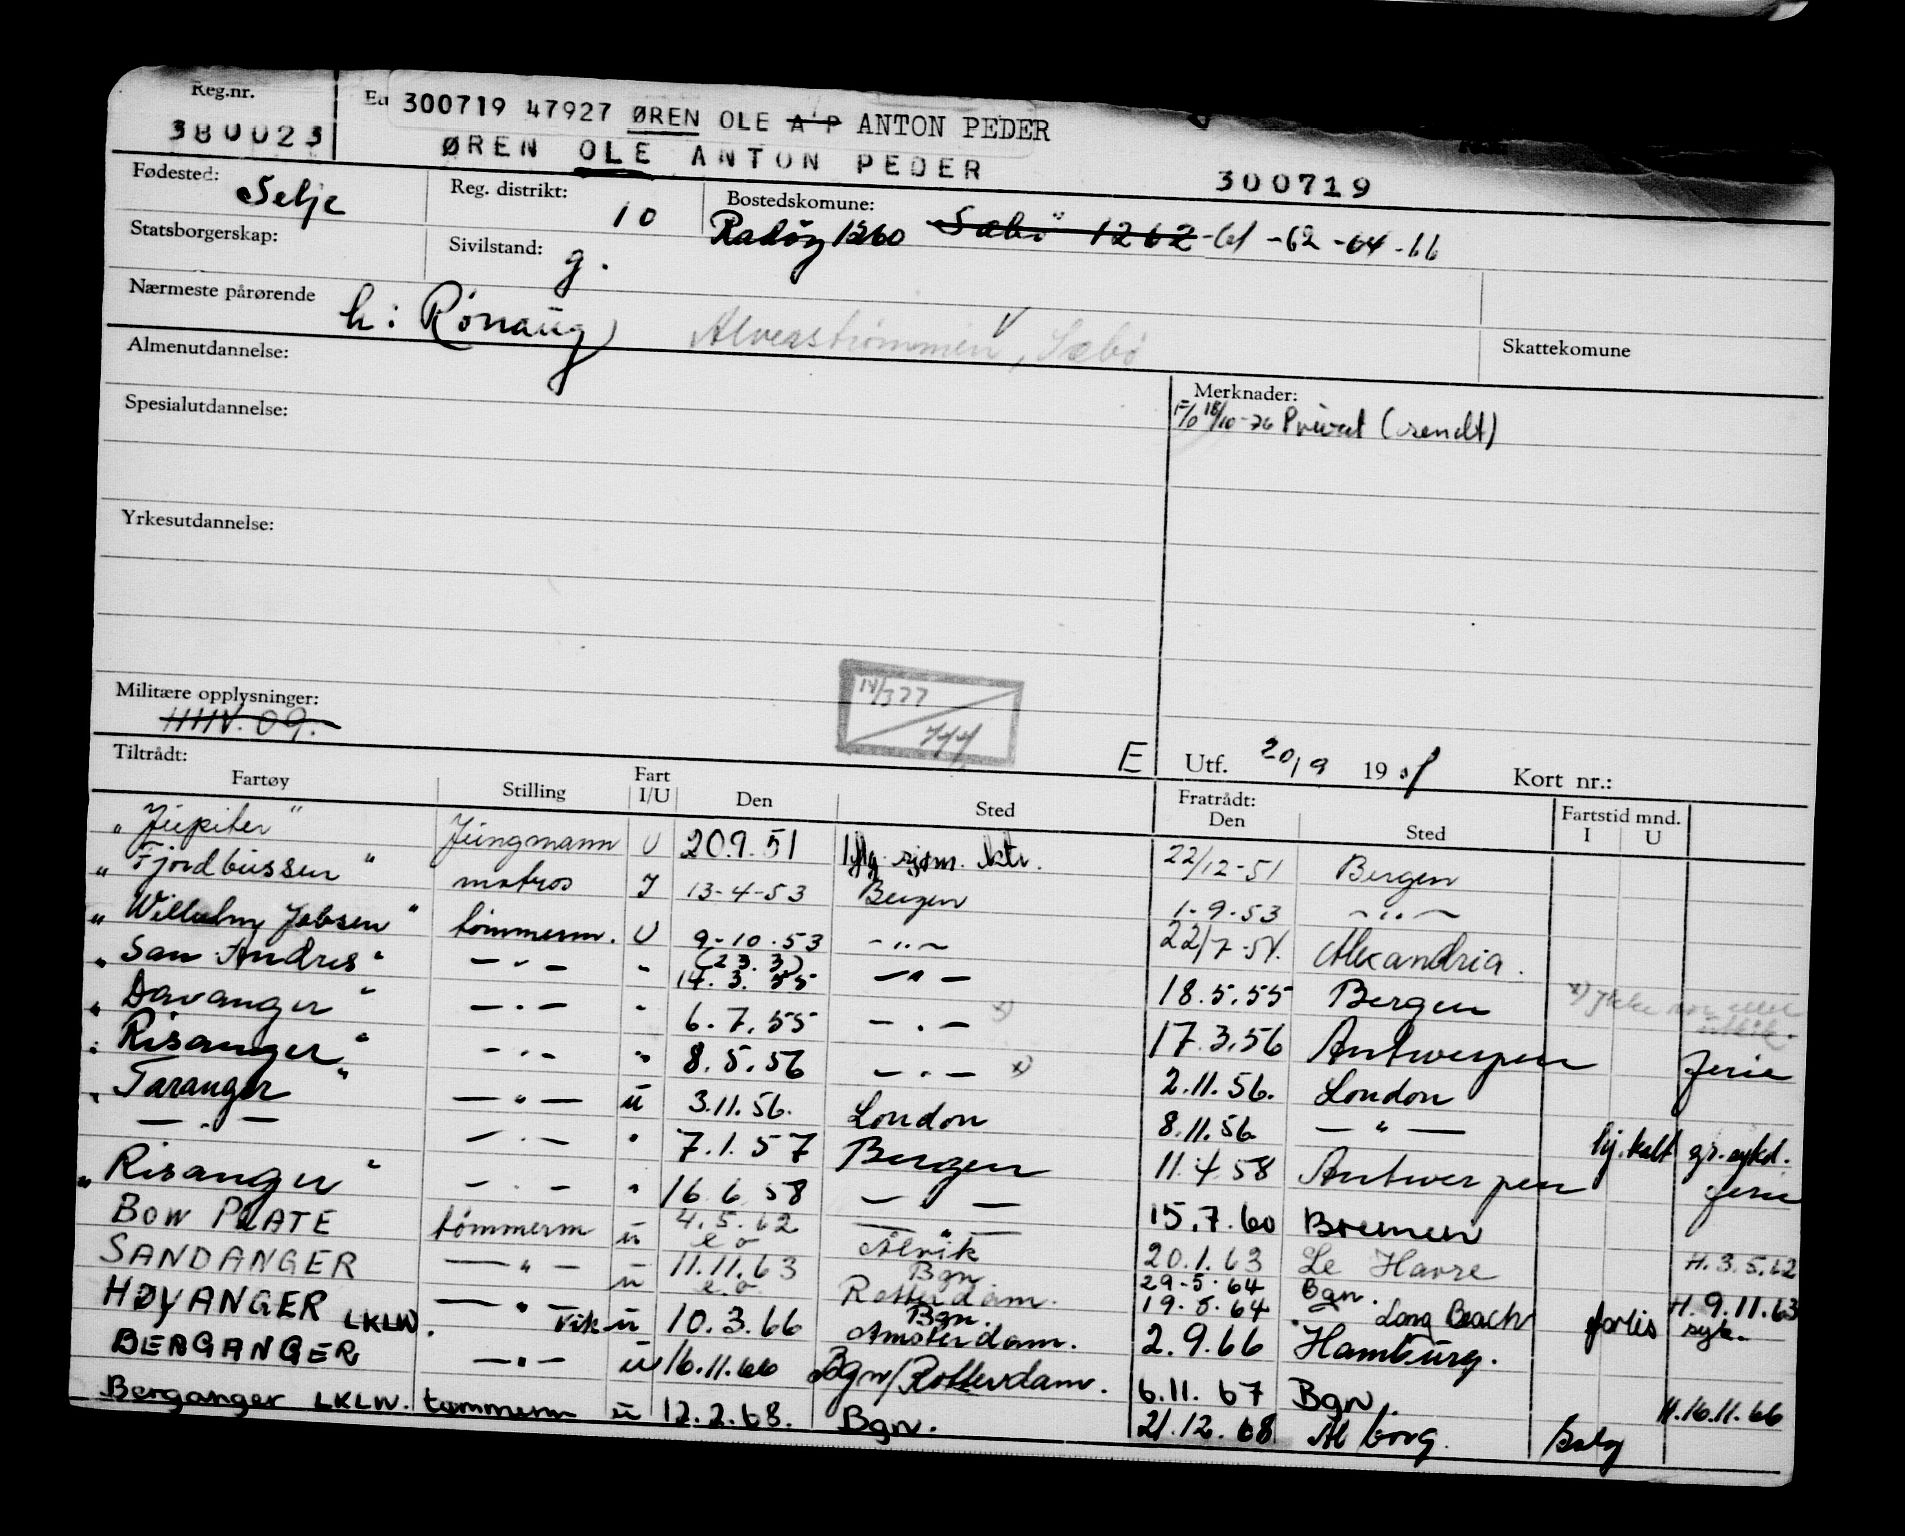 Reg.nr.
380023
300719 47927 ØREN OLE A P ANTON PEDER
ØREN OLE ANTON PEDER
300719
Fødested: Selje
Reg. distrikt: 10
Bostedskomune: Radøy 1260 Sæbö 1262 -61 -62 -64 -66
Statsborgerskap:
Sivilstand: g.
Nærmeste pårørende h: Rønaug Alverstrømmen, Sæbø
Skattekomune
Almenutdannelse:
Merknader:
F/O 18/10-76 Privat (sendt)
Spesialutdannelse:
Yrkesutdannelse:
Militære opplysninger:
E Utf. 20/9 19 51 Kort nr.:
Tiltrådt: Fratrådt: Fartstid mnd.
Fartøy Stilling Fart I/U Den Sted Den Sted I U
"Jupiter" Jungmann U 20.9.51 22/12-51 Bergen
"Fjordbussen" matros I 13-4-53 Bergen 1-9-53 — " —
"Wilhelm Jebsen" tømmerm. U 9-10-53 — " — 22/7-54. Alexandria.
"San Andres" — " — " (23.3) 14.3.55 — " — 18.5.55 Bergen
"Davanger" — " — " 6.7.55 — " — x) 17.3.56 Antwerpen ferie
"Risanger" — " — " 8.5.56 — " — x) 2.11.56. London
"Taranger" — " — u 3.11.56. London 8.11.56 — " — hj.kalt gr. sykd.
— " — — " — " 7.1.57 Bergen 11.4.58 Antwerpen ferie
"Risanger" — " — " 16.6.58 — " — 15.7.60 Bremen
BOW PLATE tømmerm u 4.5.62 Ålvik 20.1.63 Le Havre H.3.5.62
SANDANGER — " — u 11.11.63 Bgn. Rotterdam. 29-5-64 Bgn. 19.8.64 Long Beach forlis syk. H.9.11.63
HØYANGER LKLW. — " — vik u 10.3.66 Bgn. Amsterdam. 2.9.66 Hamburg.
BERGANGER — " — u 16.11.66 Bgn/Rotterdam. 6.11.67 Bgn. H.16.11.66
Berganger LKLW. tømmerm u 12.2.68. Bgn. 21.12.68 Ålborg.